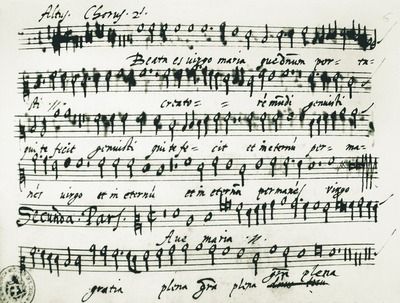 Altus. Chorus. 2.
Beata es virgo maria que dñum por= ta=
sti ij. creato= = re mũdi genuisti
qui te fecit genuisti qui te fe= cit et in eternũ per= ma=
nes virgo et in eternũ et in eternũ permanes virgo
Secunda Pars.
Ave maria ij.
gratia plena gra plena gra plena